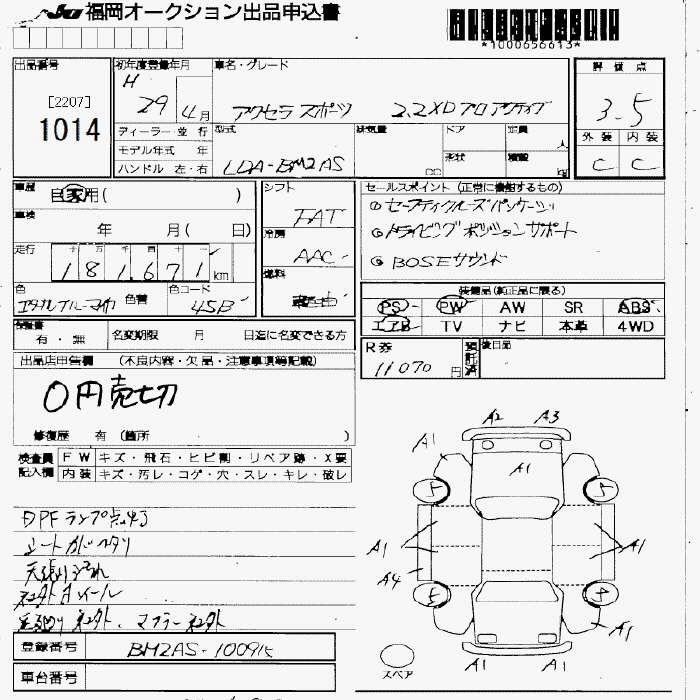 JU 福岡オークション出品申込書
*1000656613*
出品番号
[2207]
1014
初年度登録年月
H 29 4月
車名・グレード
アクセラ スポーツ 2.2XD プロアクティブ
評価点
3.5
外装 内装
C C
ディーラー・並行
モデル年式 年
ハンドル 左・右
型式
LDA-BM2AS
排気量
cc
ドア
形状
定員
人
積載
kg
車歴
自家用( )
車検
年 月( 日)
走行
十 万 千 百 十 一
181,671 km
色
エタナルブルーマイカ
色替
色コード
45B
シフト
FAT
冷房
AAC
燃料
軽油
セールスポイント (正常に機能するもの)
① セーフティクルーズパッケージ
② ドライビングポジションサポート
③ BOSEサウンド
装備品(純正品に限る)
PS PW AW SR ABS
エアB TV ナビ 本革 4WD
保証書
有・無
名変期限 月 日迄に名変できる方
R券
11070円
預託済
後日品
出品店申告欄 (不良内容・欠品・注意事項等記載)
0円売切
修復歴 有 (箇所 )
検査員記入欄
FW キズ・飛石・ヒビ割・リペア跡・X要
内装 キズ・汚レ・コゲ・穴・スレ・キレ・破レ
DPFランプ点灯
シートカバーベタリ
天張りヨゴレ
社外ホイール
社外、マフラー社外
A2 A3
A1 A1
5 5
A1 A1
A4
5 5
A1
A1 A1
スペア
登録番号
BM2AS-100915
車台番号